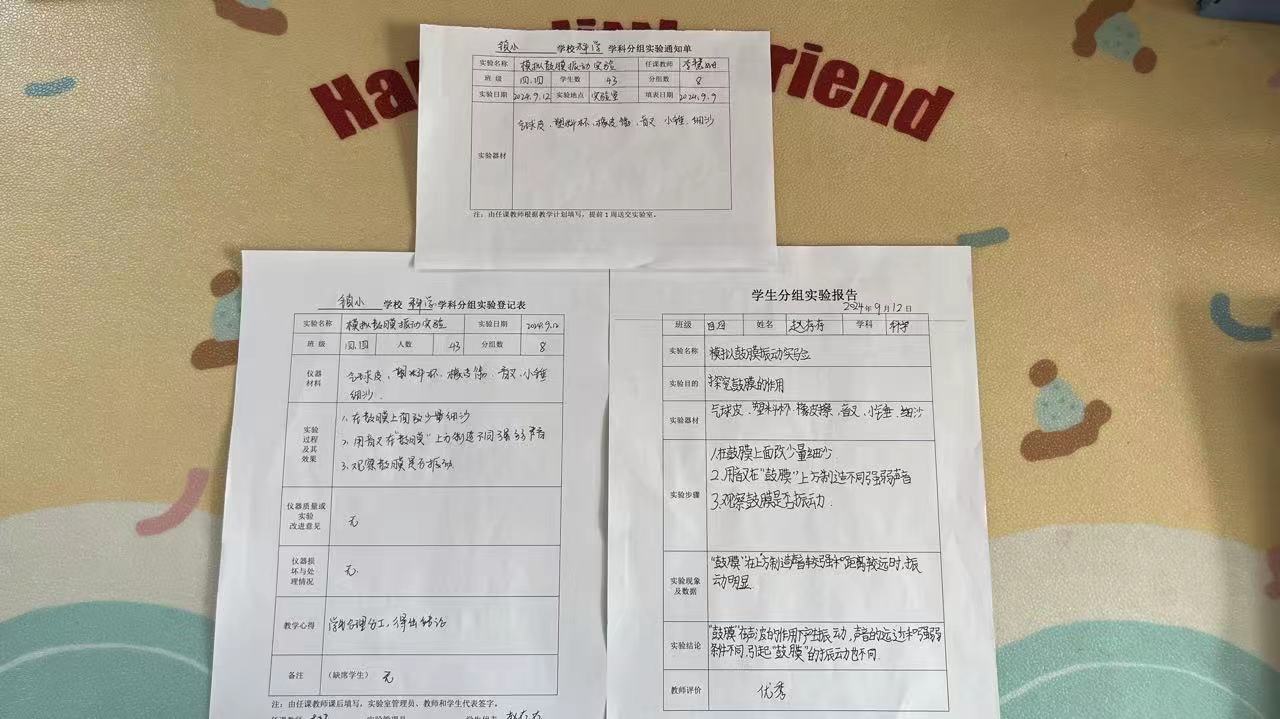 Ha
riend
镇小 学校 科学 学科分组实验通知单
实验名称 模拟鼓膜振动实验 任课教师
班 级 四.四 学生数 43 分组数 8
实验日期 2024.9.12 实验地点 实验室 填表日期 2024.9.9
实验器材 气球皮、塑料杯、橡皮筋、音叉 小锤.细沙
注：由任课教师根据教学计划填写，提前 1 周送交实验室。
镇小 学校 科学 学科分组实验登记表
实验名称 模拟鼓膜振动实验 实验日期 2024.9.12
班 级 四.四 人数 43 分组数 8
仪器材料 气球皮、塑料杯、橡皮筋、音叉、小锤
细沙.
实验过程及其效果 1.在鼓膜上面放少量细沙
2.用音叉在"鼓膜"上方制造不同强弱声音
3.观察鼓膜是否振动
仪器质量或实验改进意见 无
仪器损坏与处理情况 无.
教学心得 合理分工，得出结论
备注 （缺席学生） 无
注：由任课教师课后填写，实验室管理员、教师和学生代表签字。
学生分组实验报告
2024年9月12日
班级 四.四 姓名 学科 科学
实验名称 模拟鼓膜振动实验
实验目的 探究鼓膜的作用
实验器材 气球皮、塑料杯、橡皮擦、音叉、小锤、细沙
实验步骤 1.在鼓膜上面放少量细沙.
2.用音叉在"鼓膜"上方制造不同强弱声音
3.观察鼓膜是否振动.
实验现象及数据 "鼓膜"在上方制造声音较强和距离较远时，振
动明显
实验结论 "鼓膜"在声波的作用下产生振动，声音的远近和强弱
条件不同，引起"鼓膜"的振动也不同.
教师评价 优秀